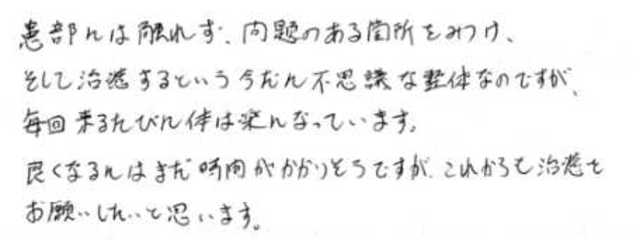 患部には触れず、問題のある箇所をみつけ、
そして治療するという今だに不思議な整体なのですが、
毎回来るたびに体は楽になっています。
良くなるにはまだ時間がかかりそうですが、これからも治療を
お願いしたいと思います。